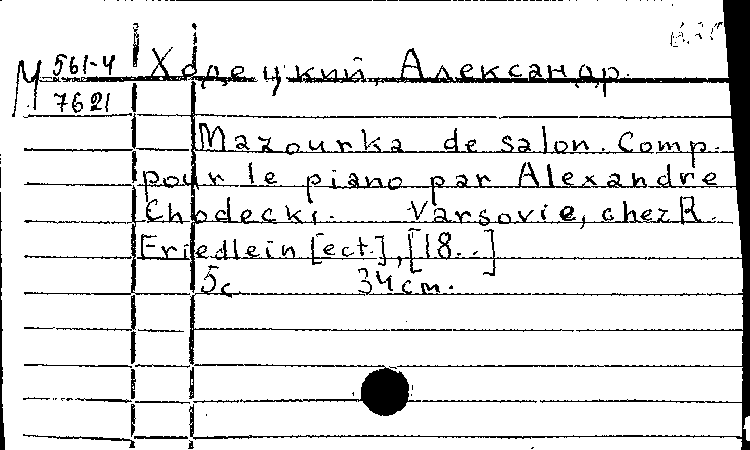 М 561-4 Ходецкий, Александр.
7621
Mazourka de salon. Comp.
pour le piano par Alexandre
Chodecki. Varsovie, chez R.
Friedlein [ect.], [18..]
5c 34 cm.